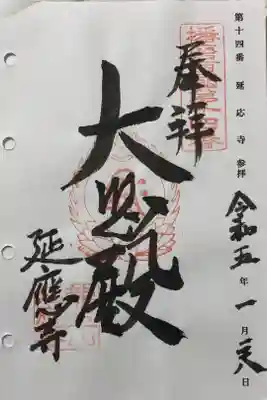 第十四番 延応寺 参拝
令和五年一月 日
奉拝
大悲殿
延應寺